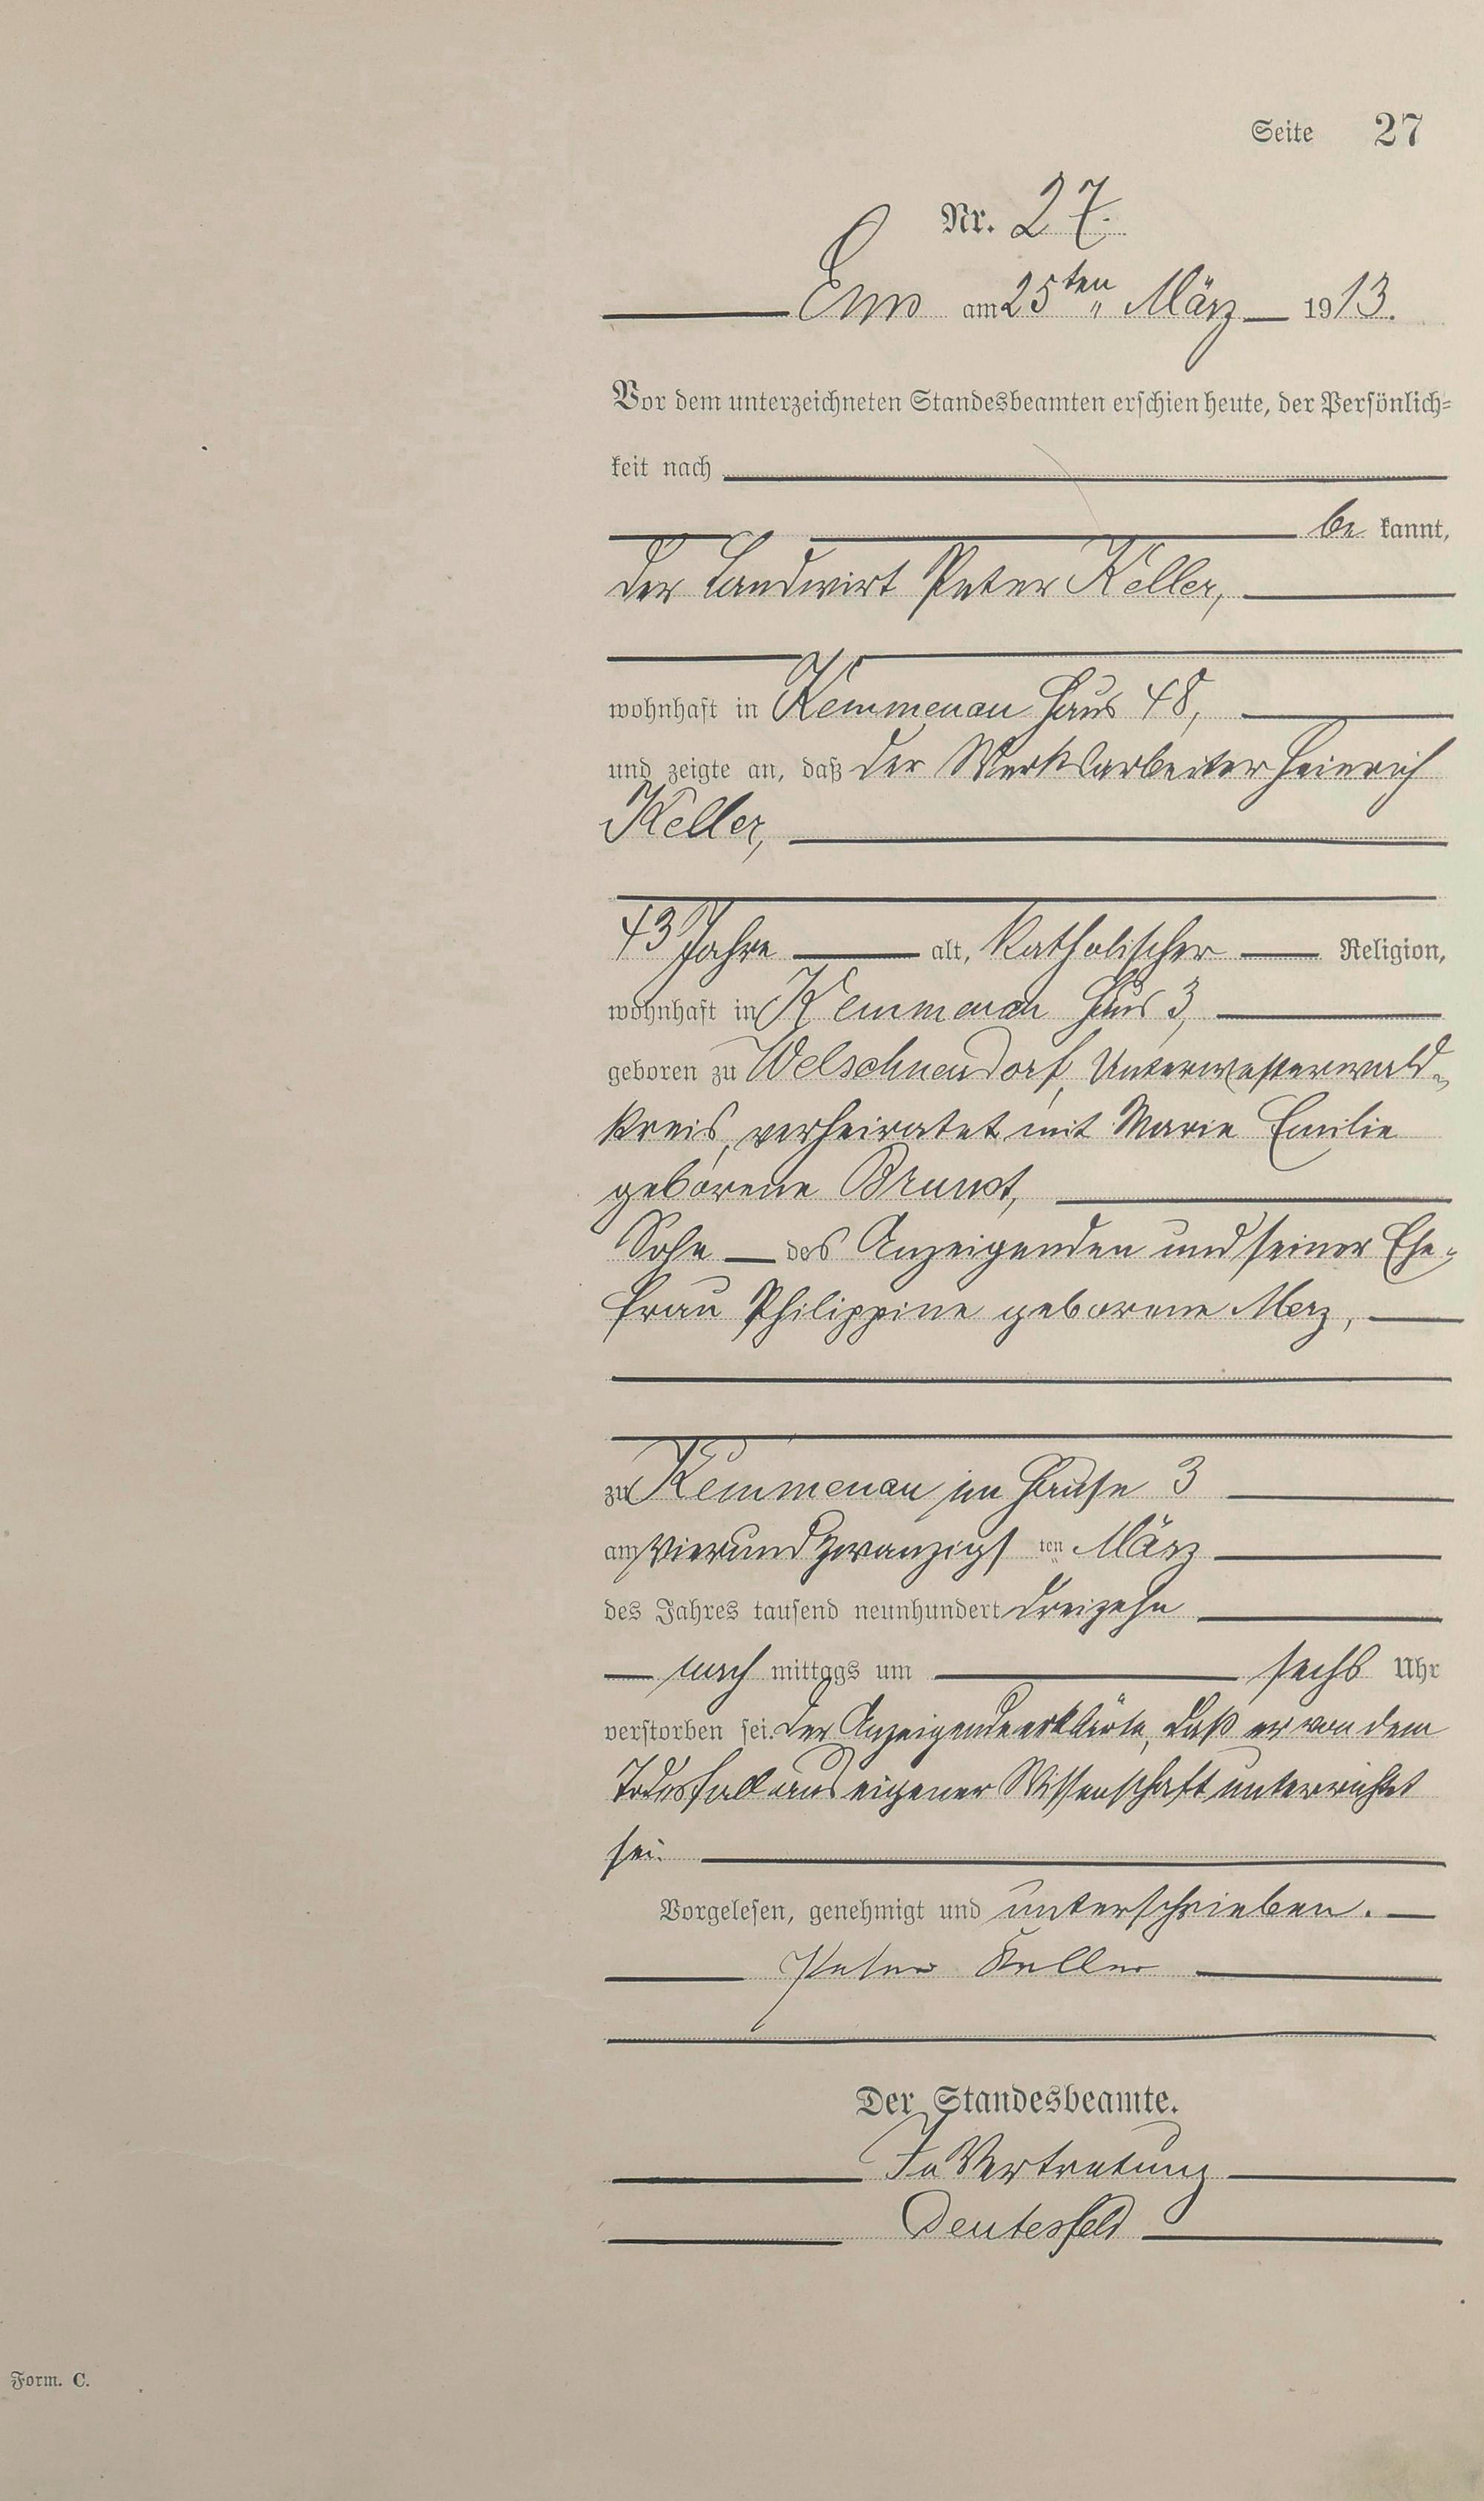 Seite 27
Nr. 27.
Ems am 25ten März 1913.
Vor dem unterzeichneten Standesbeamten erschien heute, der Persönlich=
keit nach
be kannt,
der Landwirt Peter Keller,
wohnhaft in Kemmenau Haus 48,
und zeigte an, daß der Werksarbeiter Heinrich
Keller,
43 Jahre alt, katholischer Religion,
wohnhaft in Kemmenau Haus 3,
geboren zu Welschneudorf, Unterwesterwald-
kreis, verheiratet mit Marie Emilie
geborene
Sohn des Anzeigenden und seiner Ehe-
frau Philippine geborene Merz,
zu Kemmenau im Hause 3
am vierundzwanzigsten März
des Jahres tausend neunhundert dreizehn
nach mittags um sechs Uhr
verstorben sei. Der Anzeigende erklärte, daß er von dem
Todesfall aus eigener Wissenschaft unterrichtet
sei.
Vorgelesen, genehmigt und unterschrieben.
Peter Keller
Der Standesbeamte.
In Vertretung
Deutesfeld
Form. C.